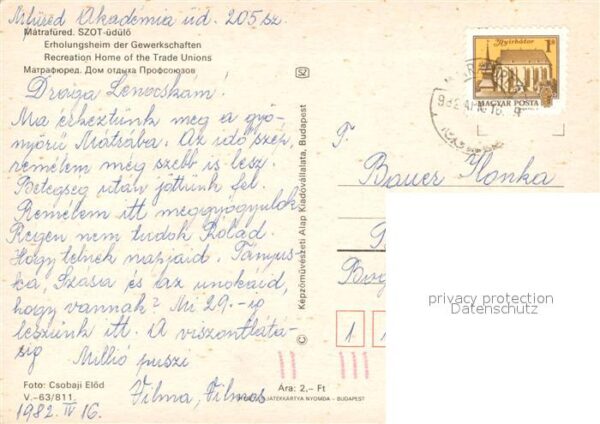 M.füred Akadémia üd. 205 sz.
Mátrafüred. SZOT-üdülő
Erholungsheim der Gewerkschaften
Recreation Home of the Trade Unions
Матрафюред. Дом отдыха Профсоюзов
Drága Lencskám!
Ma érkeztünk meg a gyö-
nyörű Mátrába. Az idő szép,
remélem még szebb is lesz.
Betegség után jöttünk fel.
Remélem itt meggyógyulok
Régen nem tudok Rólad.
Hogy telnek napjaid. Tányus-
ka, Szásia és az unokáid,
hogy vannak? Mi 29.-ig
leszünk itt. A viszontlátá-
sig Millió puszi
Vilma, Vilmos
1982. IV 16.
Foto: Csobaji Előd
V.-63/811.
Ára: 2,- Ft
JÁTÉKKÁRTYA NYOMDA - BUDAPEST
© Képzőművészeti Alap Kiadóvállalata, Budapest
Nyírbátor
1 Ft
MAGYAR POSTA
982 ÁPR. 16. 9
F.
Bauer Ilonka
1
privacy protection
Datenschutz